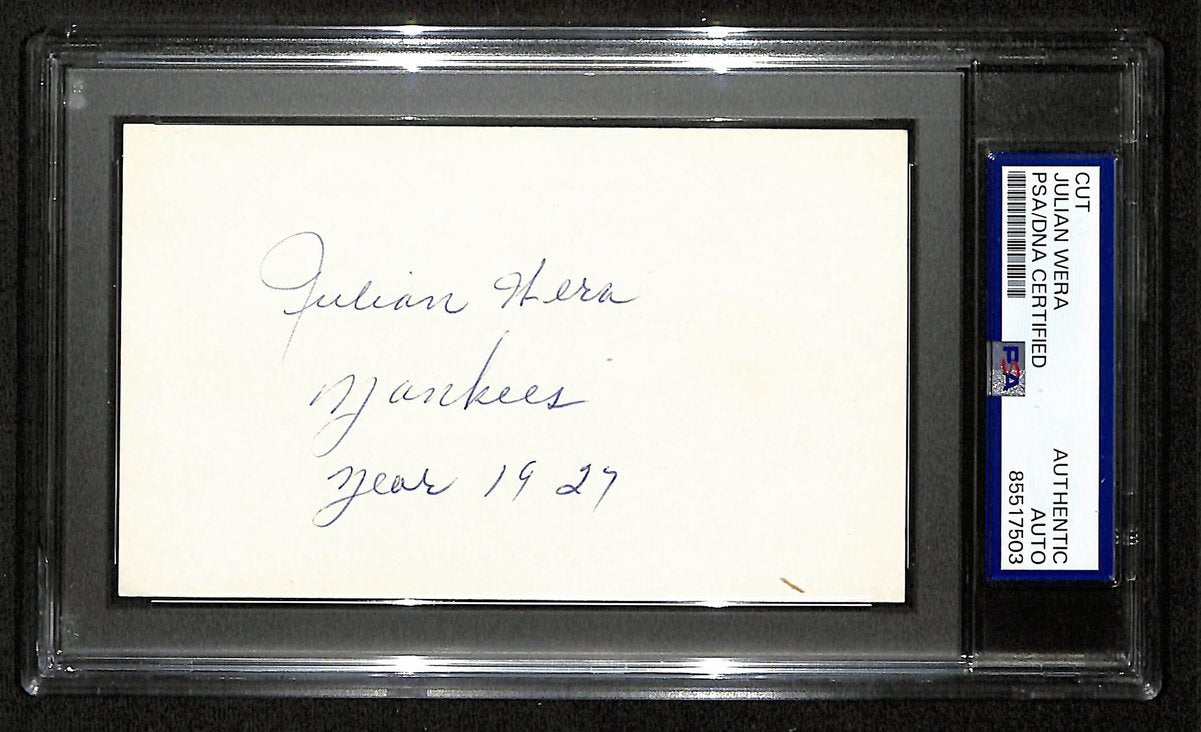 Julian Wera
Yankees
Year 1927
CUT
JULIAN WERA
PSA/DNA CERTIFIED
PSA
AUTHENTIC
AUTO
85517503